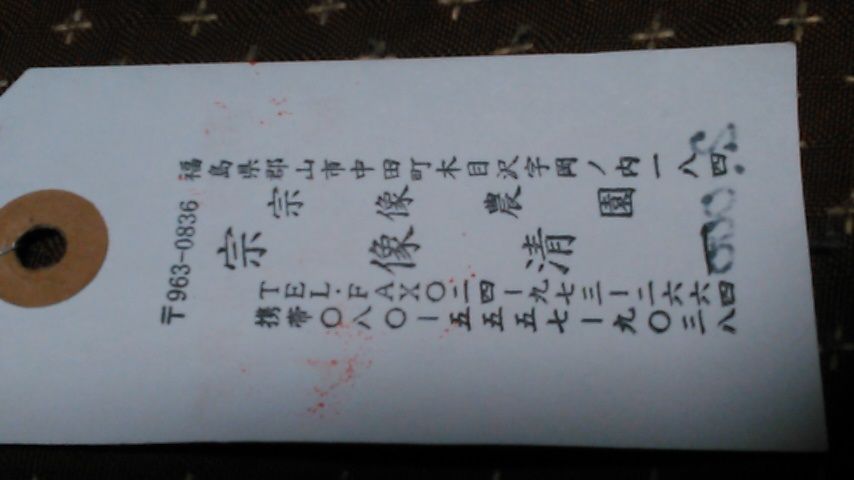 福島県郡山市中田町木目沢字岡ノ内一八四
〒963-0836
宗像農園
宗像清
TEL.FAX〇二四ー九七三ー二六六四
携帯〇八〇ー五五五七ー九〇三八